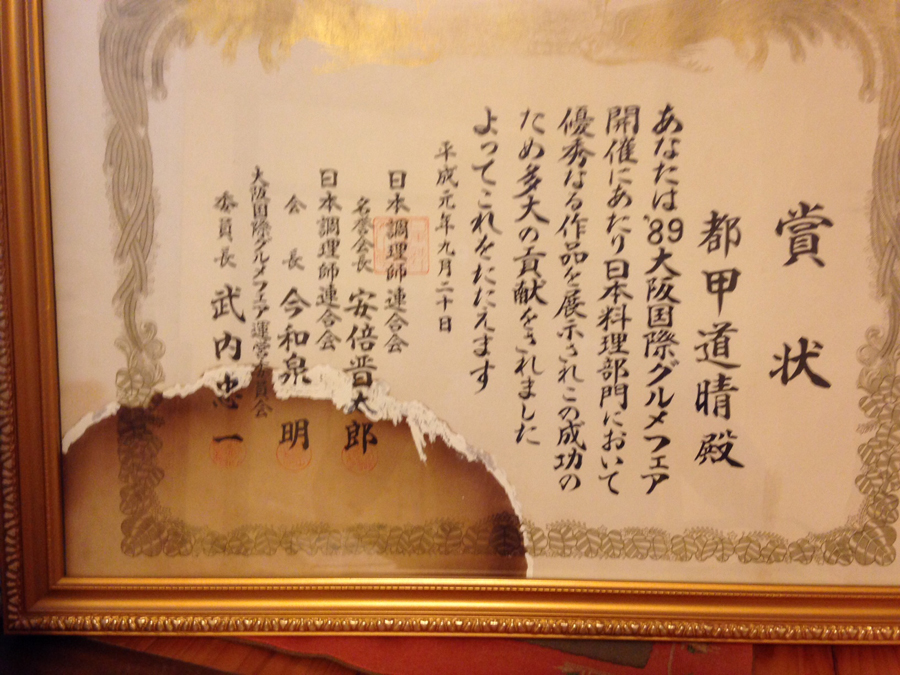 賞状
都甲道晴殿
あなたは'89大阪国際グルメフェア
開催にあたり日本料理部門において
優秀なる作品を展示されこの成功の
ため多大の貢献をされました
よってこれをたたえます
平成元年九月二十日
日本調理師連合会
名誉会長 安倍晋太郎
日本調理師連合会
会長 今和泉 明
大阪国際グルメフェア運営委員会
委員長 武内忠一